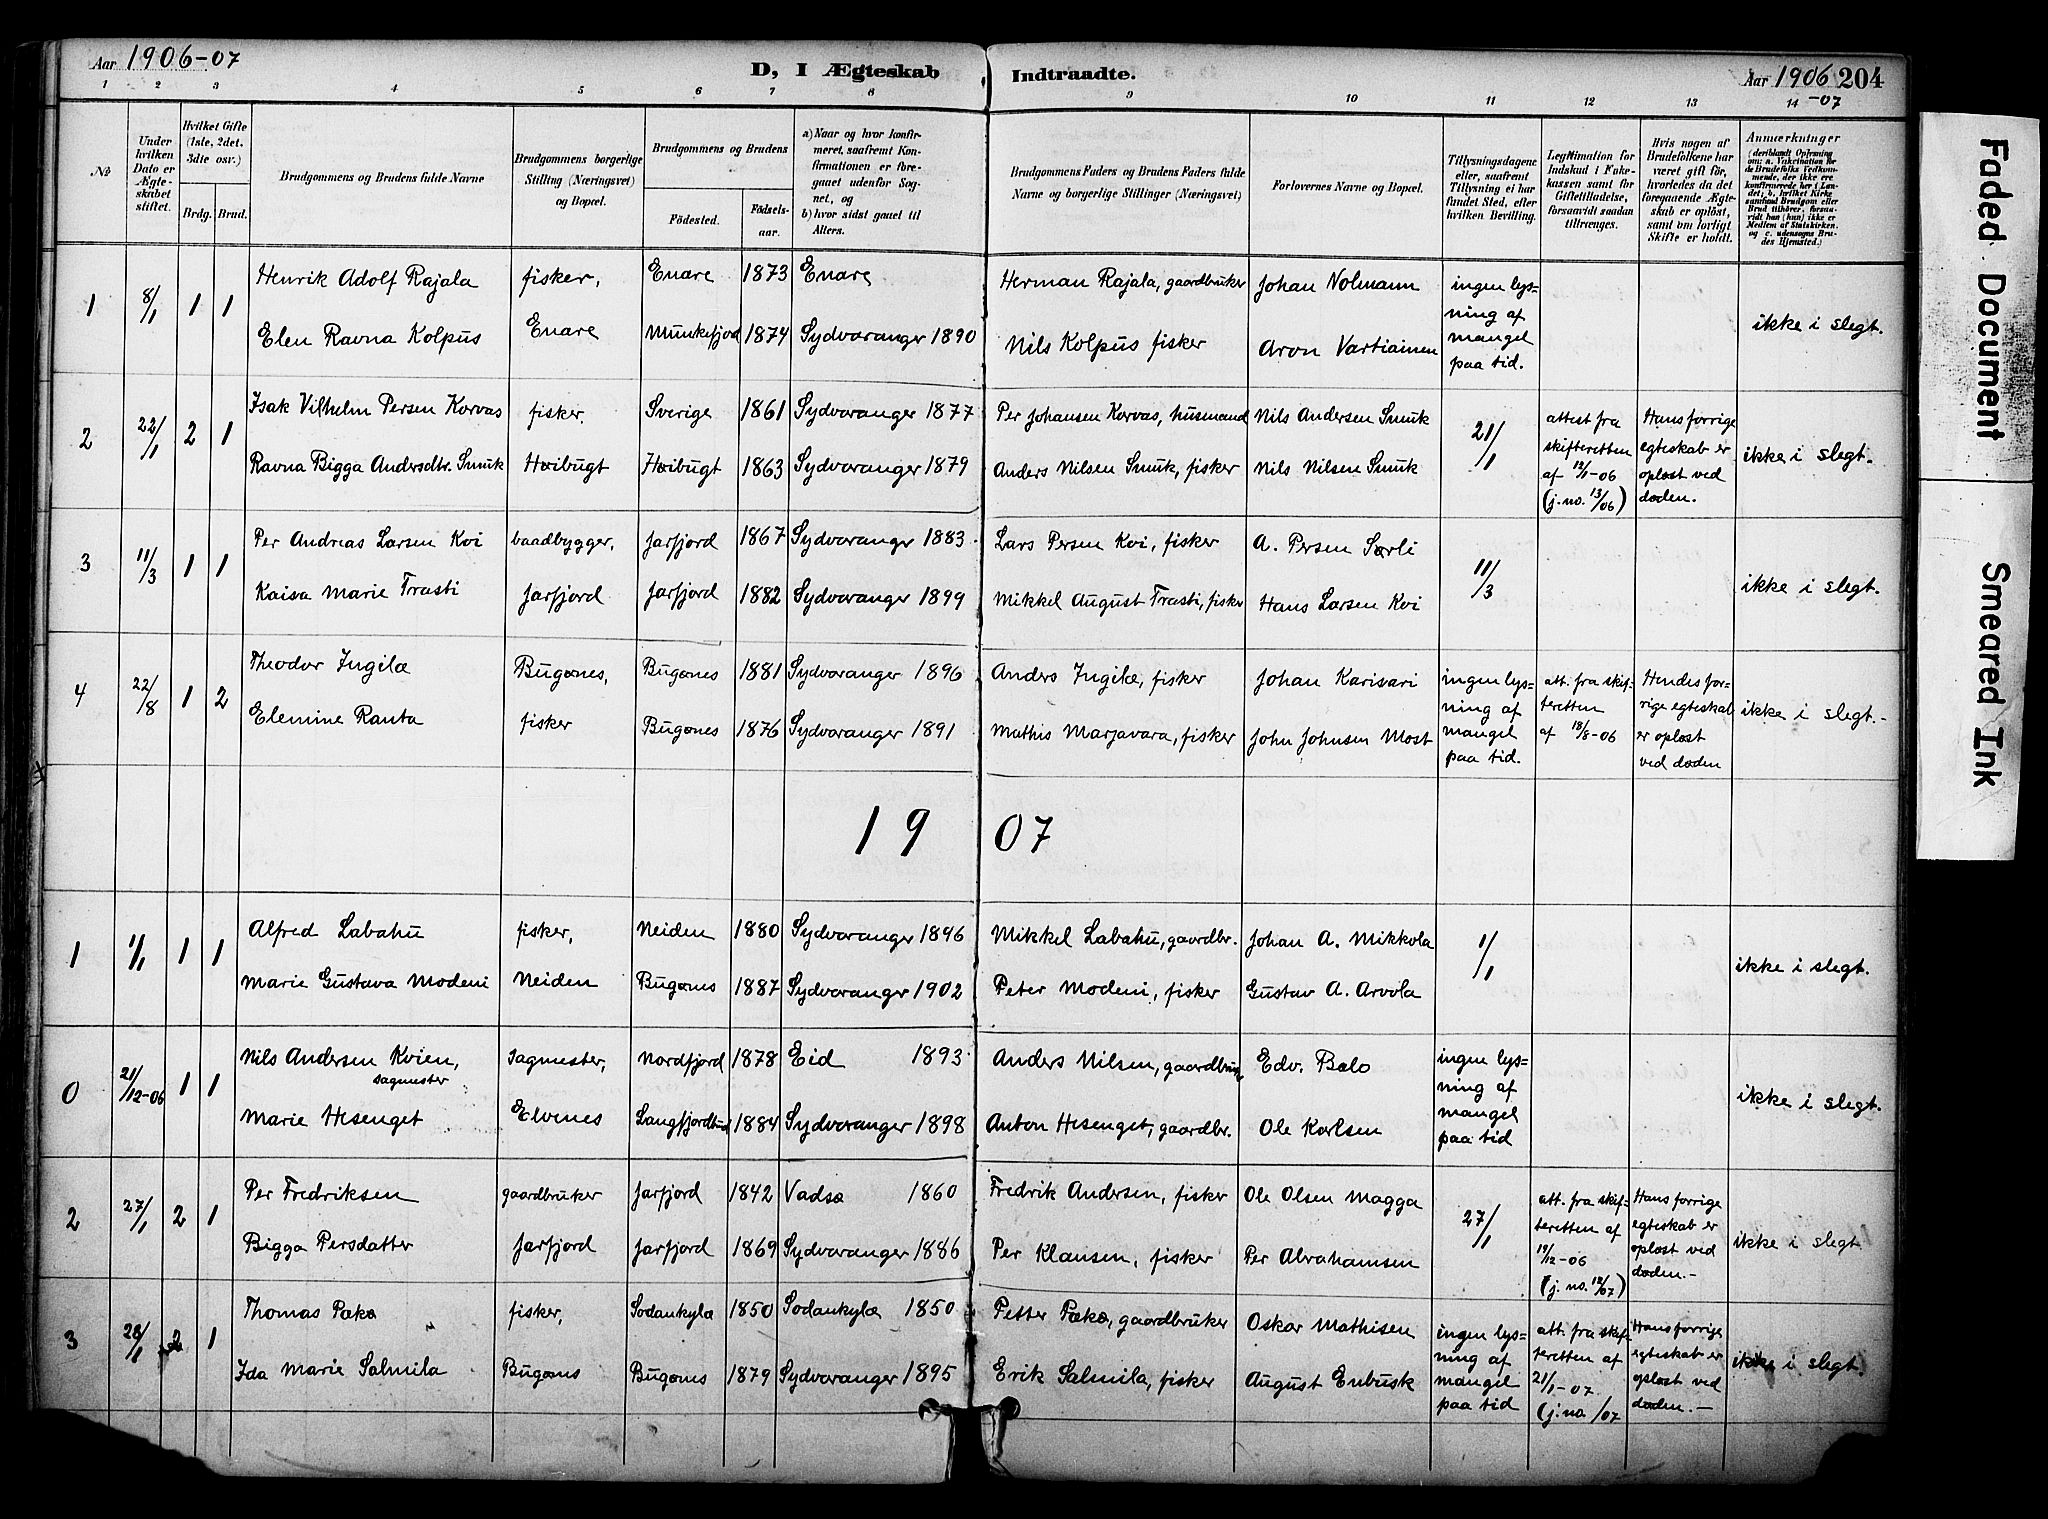 Aar 1906-07
D, I Ægteskab
Indtraadte.
Aar 1906 204
-07
1 2 3 4 5 6 7 8 9 10 11 12 13 14
No
Under hvilken Dato er Ægteskabet stiftet.
Hvilket Gifte (1ste, 2det, 3dte osv.)
Brdg. Brud.
Brudgommens og Brudens fulde Navne
Brudgommens borgerlige Stilling (Næringsvei) og Bopæl.
Brudgommens og Brudens
Födested.
Födselsaar.
a) Naar og hvor konfirmeret, saafremt Konfirmationen er foregaaet udenfor Sognet, og
b) hvor sidst gaaet til Alters.
Brudgommens Faders og Brudens Faders fulde Navne og borgerlige Stillinger (Næringsvei)
Forlovernes Navne og Bopæl.
Tillysningsdagene eller, saafremt Tillysning ei har fundet Sted, efter hvilken Bevilling.
Legitimation for Indskud i Enkekassen samt for Giftetilladelse, forsaavidt saadan tiltrænges.
Hvis nogen af Brudefolkene har været gift för, hvorledes da det foregaaende Ægteskab er oplöst, samt om lovligt Skifte er holdt.
Anmærkninger
(deriblandt Oplysning om: a. Vakcination for de Brudefolks Vedkommende, der ikke ere konfirmerede her i Landet; b. hvilket Kirkesamfund Brudgom eller Brud tilhörer, forsaavidt han (hun) ikke er Medlem af Statskirken, og c. udensogns Brudes Hjemsted.)
1 8/1 1 1 Henrik Adolf Rajala fisker, Enare 1873 Enare Herman Rajala, gaardbruker Johan Nolmann ingen lysning af mangel paa tid. ikke i slegt.
Elen Ravna Kolpus Enare Munkefjord 1874 Sydvaranger 1890 Nils Kolpus fisker Aron Vartiainen
2 22/1 2 1 Isak Vilhelm Persen Korvas fisker. Sverige 1861 Sydvaranger 1877 Per Johansen Korvas, husmand Nils Andersen Smuk 21/1 attest fra skifteretten af 12/1-06 (j. no. 13/06) Hans forrige egteskab er opløst ved døden. ikke i slegt.
Ravna Bigga Andersdtr. Smuk Høibugt Høibugt 1863 Sydvaranger 1879 Anders Nilsen Smuk, fisker Nils Nilsen Smuk
3 11/3 1 1 Per Andreas Larsen Kvi baadbygger, Jarfjord 1867 Sydvaranger 1883. Lars Persen Kvi, fisker A. Persen Sørli 11/3 ikke i slegt.
Kaisa Marie Trasti Jarfjord Jarfjord 1882 Sydvaranger 1899 Mikkel August Trasti, fisker Hans Larsen Kvi
4 22/8 1 2 Theodor Ingilæ Bugønes, Bugønes 1881 Sydvaranger 1896 Anders Ingilæ, fisker Johan Karisari ingen lysning af mangel paa tid. att. fra skifteretten af 18/8-06 Hendes forrige egteskab er opløst ved døden ikke i slegt.-
Elemine Ranta fisker Bugønes 1876 Sydvaranger 1891 Mathis Marjavara, fisker John Johnsen Most
1907
1 1/1 1 1 Alfred Labahu fisker, Neiden 1880 Sydvaranger 1896 Mikkel Labahu, gaardbr. Johan A. Mikkola 1/1 ikke i slegt.
Marie Gustava Modeni Neiden Bugønes 1887 Sydvaranger 1902 Peter Modeni, fisker Gustav A. Arvola
0 21/12-06 1 1 Nils Andersen Kvien, sagmester sagmester, Nordfjord 1878 Eid 1893. Anders Nilsen, gaardbruker Edv. Balo ingen lysning af mangel paa tid ikke i slegt.
Marie Hesenget Elvenes Langfjordbund 1884 Sydvaranger 1898 Anton Hesenget, gaardbr. Ole Karlsen
2 27/1 2 1 Per Fredriksen gaardbruker Jarfjord 1842 Vadsø 1860 Fredrik Andersen, fisker Ole Olsen Magga 27/1 att. fra skifteretten af 19/12-06 (j. no. 12/07) Hans forrige egteskab er opløst ved døden.- ikke i slegt
Bigga Persdatter Jarfjord Jarfjord 1869 Sydvaranger 1886 Per Klausen, fisker Per Abrahamsen
3 28/1 2 1 Thomas Pøkø fisker, Sodankylæ 1850 Sodankylæ 1850 Petter Pøkø, gaardbruker Oskar Mathisen ingen lysning af mangel paa tid att. fra skifteretten af 21/1-07 (j. no. /07 Hans forrige egteskab er opløst ved døden.- ikke i slegt.
Ida Marie Salmila Bugønes Bugønes 1879 Sydvaranger 1895 Erik Salmila, fisker August Enbusk
Faded Document
Smeared Ink